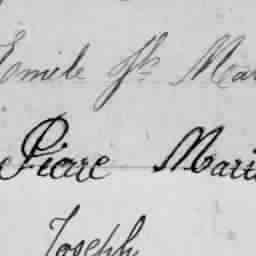 Emile Jh Mar
Pierre Marie
Joseph